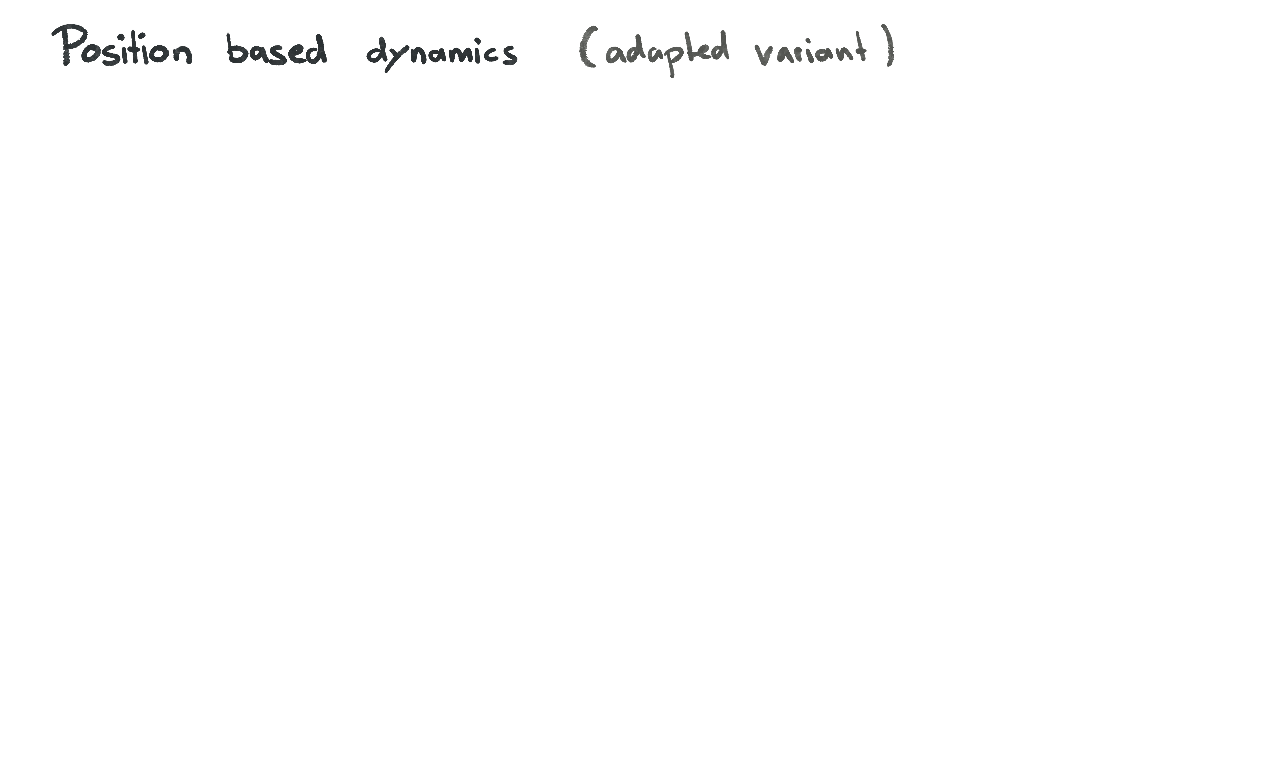 Position based dynamics (adapted variant)